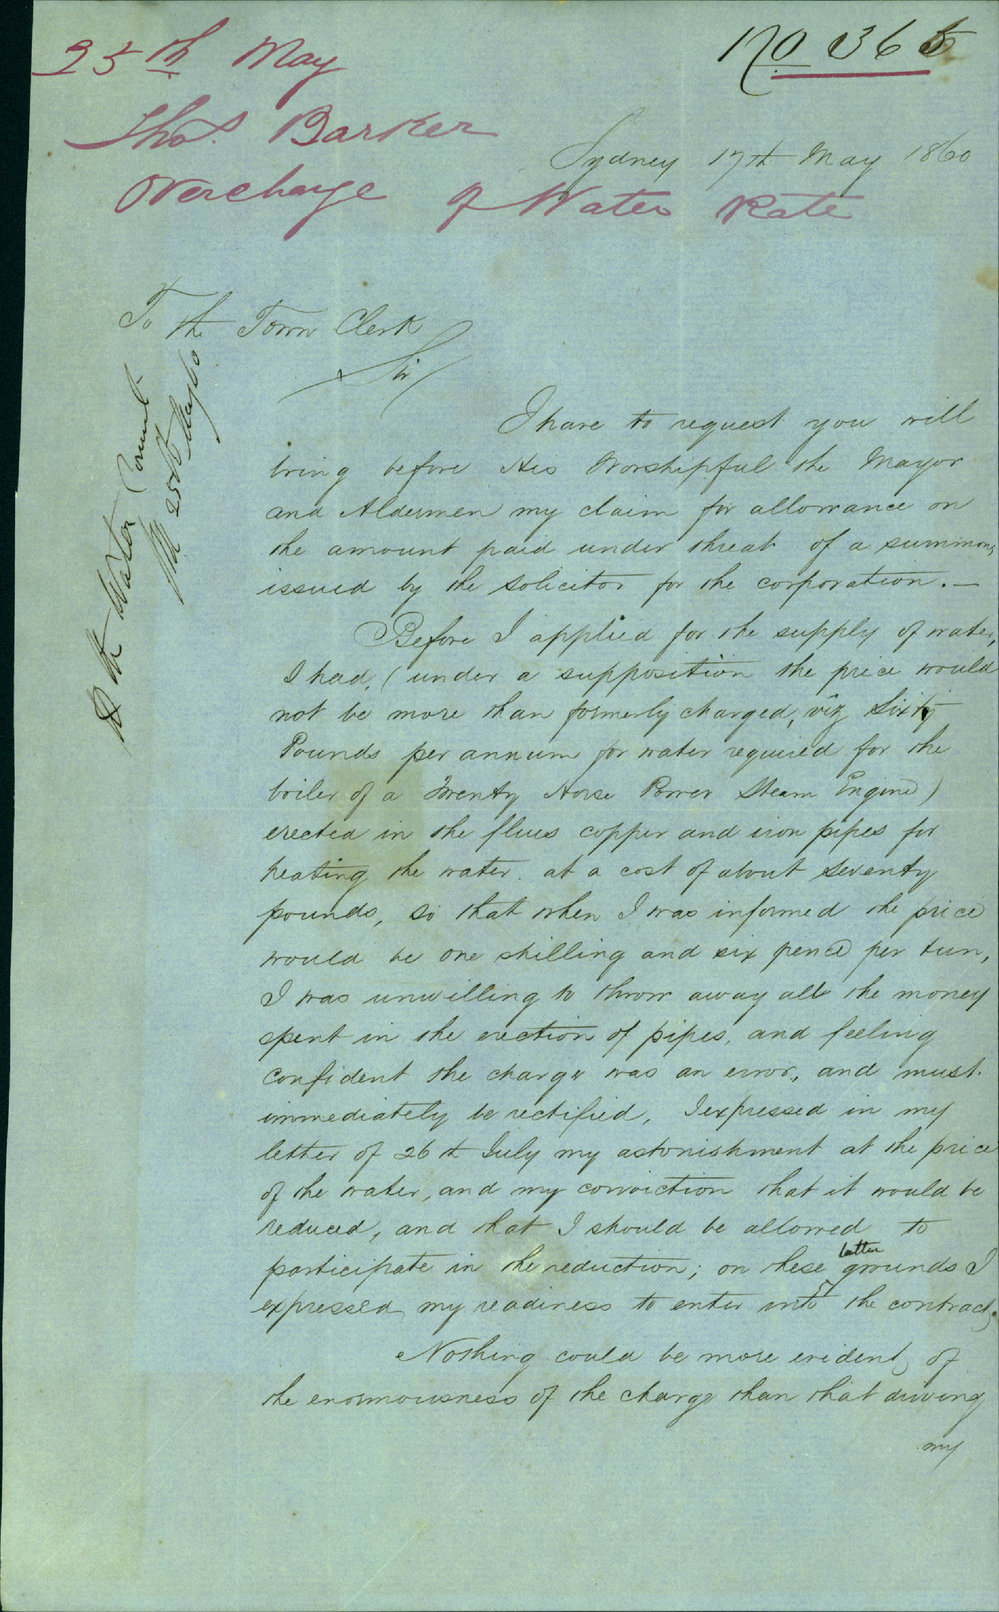 25th May
No 365
Thos. Barker
Sydney 17th May 1860
Overcharge of Water Rate
To the Town Clerk
Sir
To the Water Committ
25th May 60
I have to request you will
bring before His Worshipful the Mayor
and Aldermen my claim for allowance on
the amount paid under threat of a summons
issued by the Solicitor for the corporation. —
Before I applied for the supply of water,
I had, (under a supposition the price would
not be more than formerly charged, viz Sixty
Pounds per annum for water required for the
boiler of a Twenty Horse Power Steam Engine)
erected in the flues copper and iron pipes for
heating the water at a cost of about seventy
pounds, so that when I was informed the price
would be one shilling and six pence per tun,
I was unwilling to throw away all the money
spent in the erection of pipes, and feeling
confident the charge was an error, and must
immediately be rectified, I expressed in my
letter of 26th July my astonishment at the price
of the water, and my conviction that it would be
reduced, and that I should be allowed to
participate in the reduction; on these latter grounds I
expressed my readiness to enter into the contract.
Nothing could be more evident, of
the enormousness of the charge than that during
my